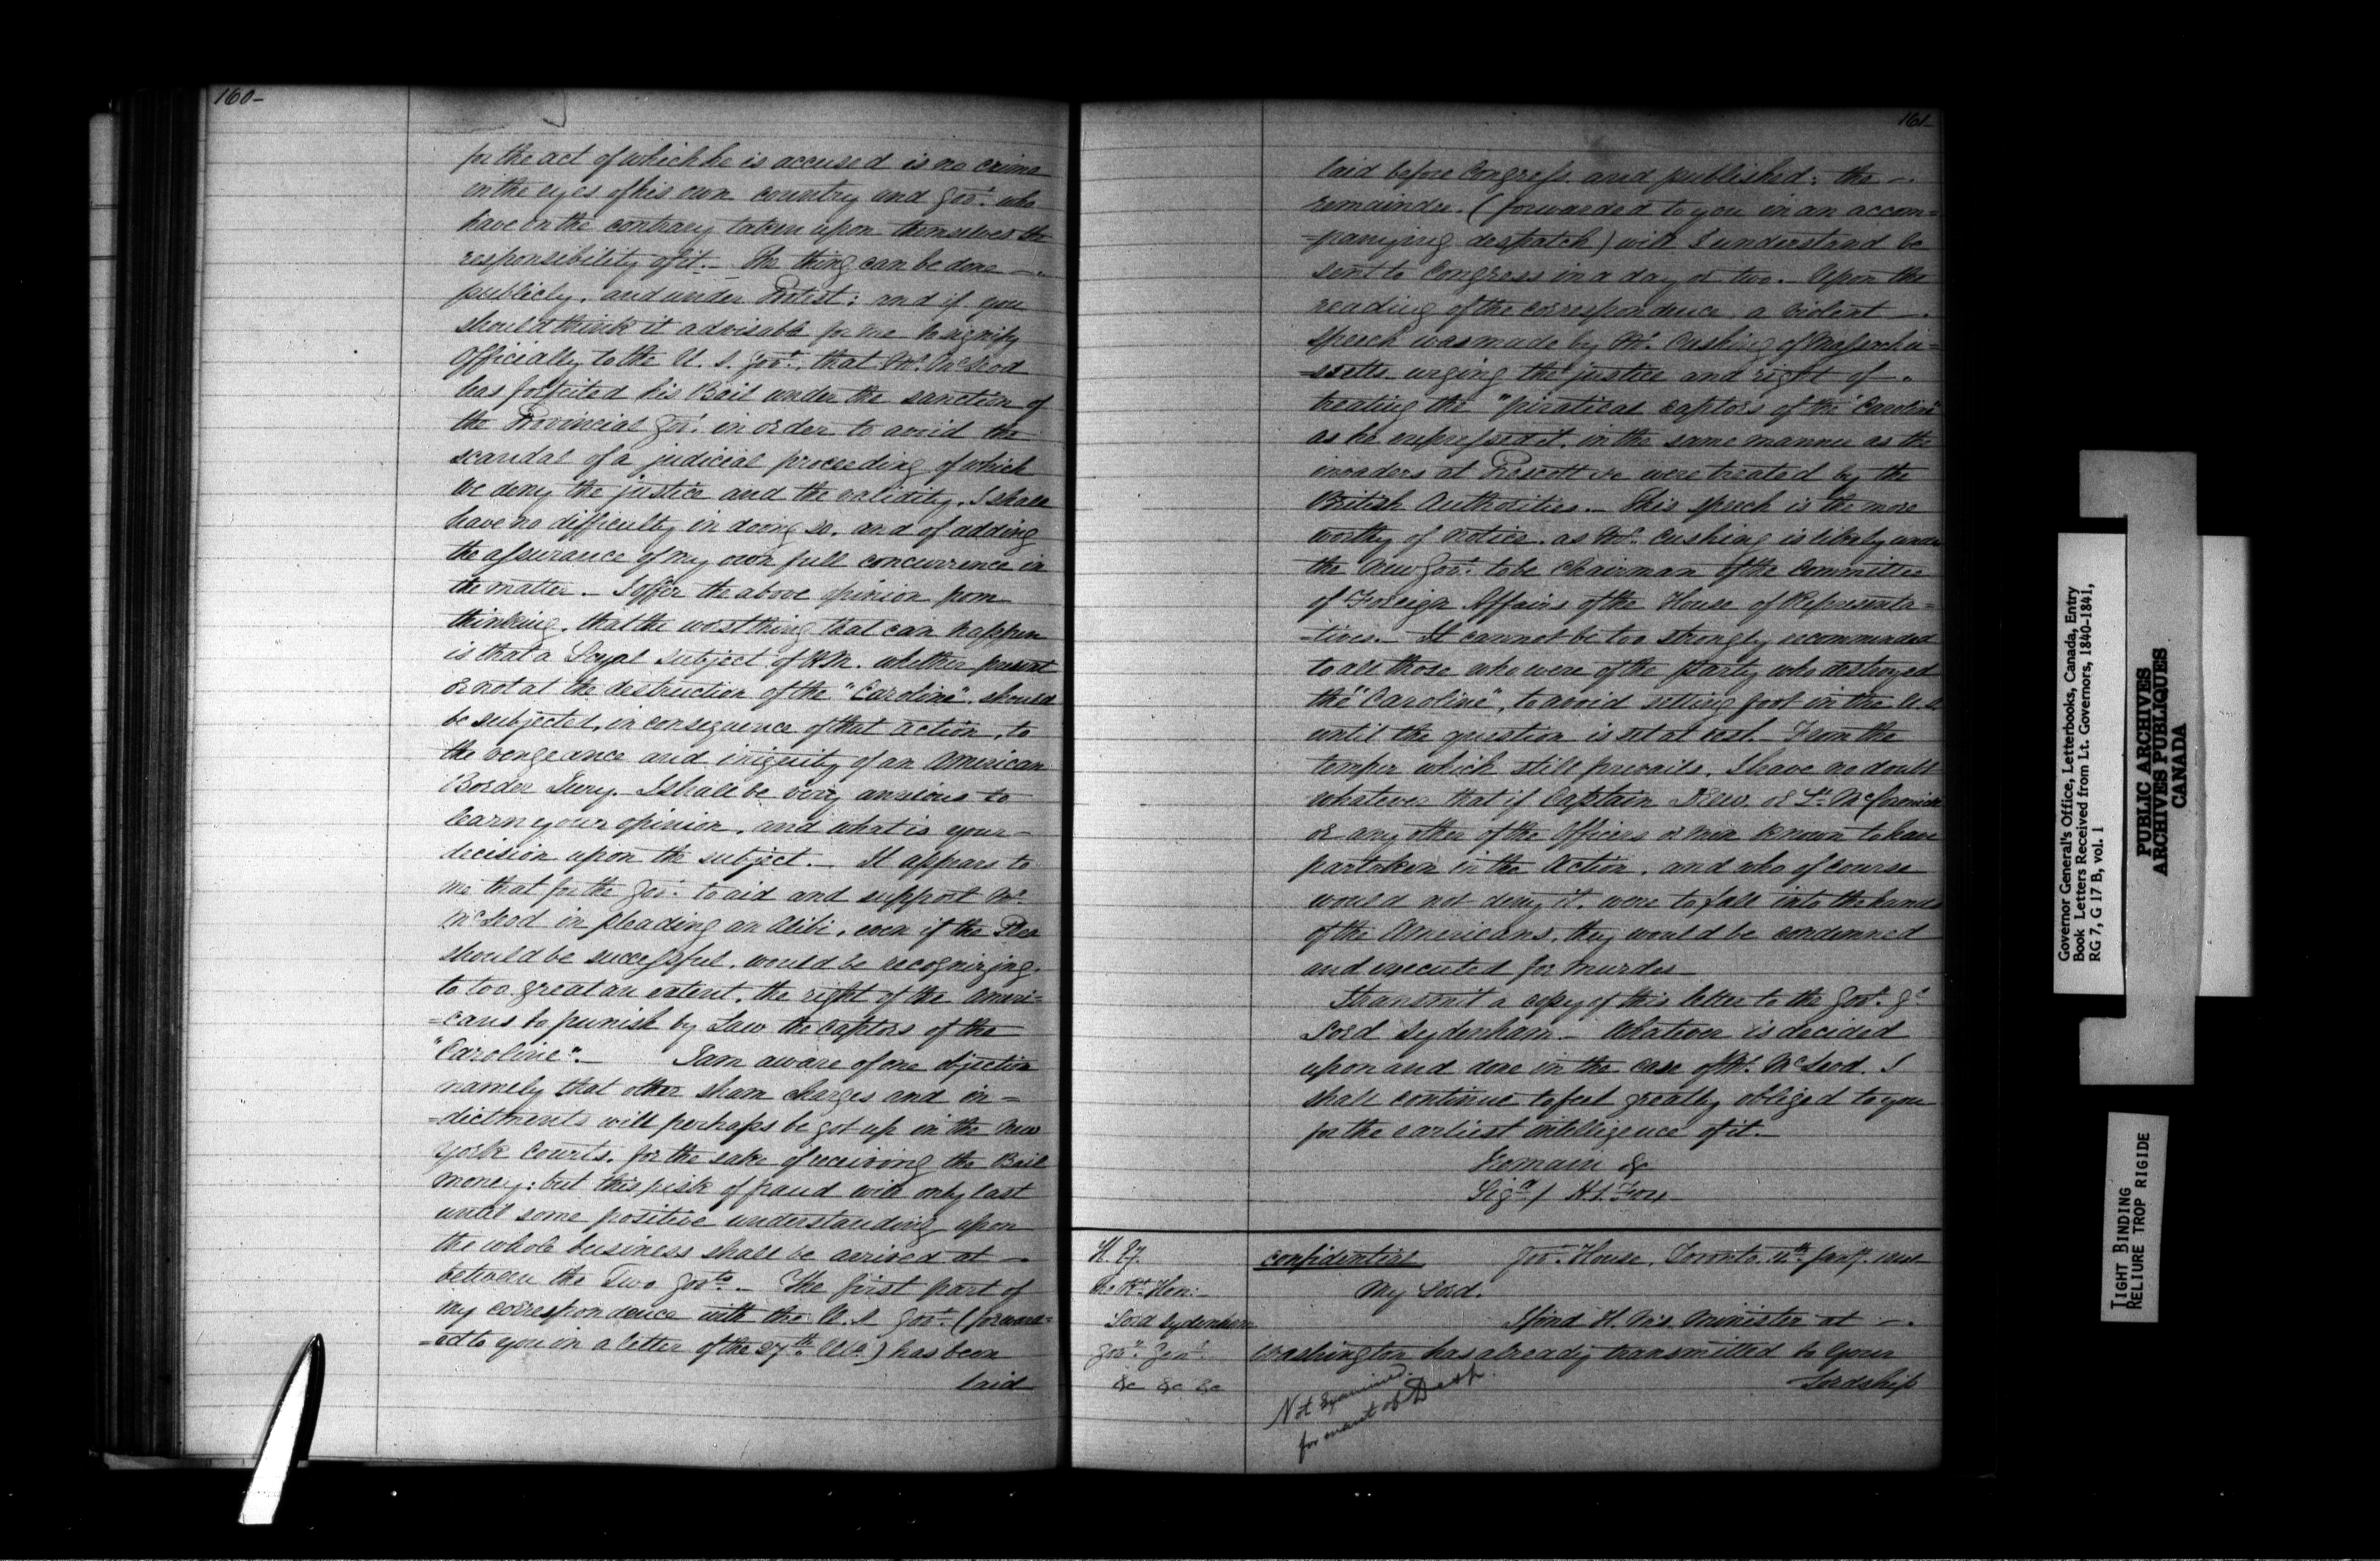 160-
for the act of which he is accused is no crime
in the eyes of his own country and Govt. who
have on the contrary taken upon themselves the
responsibility of it. _ The thing can be done _
publicly, and under Protest: and if you
should think it advisable for me to signify
Officially to the U. S. Govt. that Mr. McLeod
has forfeited his Bail under the sanction of
the Provincial Govt. in order to avoid the
scandal of a judicial proceeding of which
we deny the justice and the validity, I shall
have no difficulty in doing so, and of adding
the assurance of my own full concurrence in
the matter _ I offer the above opinion from
thinking, that the worst thing that can happen
is that a Loyal subject of H.M. whether present
or not at the destruction of the "Caroline", should
be subjected, in consequence of that action, to
the vengeance and iniquity of an American
Border Jury. I shall be very anxious to
learn your opinion, and what is your _
decision upon the subject. _ It appears to
me that for the Govt. to aid and support Mr.
McLeod in pleading an Alibi, even if the Plea
should be successful, would be recognizing,
to too great an extent, the right of the Ameri=
=cans to punish by Law the captors of the
"Caroline". _ I am aware of one objection
namely that other sham charges and in=
=dictments will perhaps be got up in the New
York Courts, for the sake of receiving the Bail
money: but this risk of fraud will only last
until some positive understanding upon
the whole business shall be arrived at _
between the Two Govts. _ The first part of
my correspondence with the U. S Govt. (forward=
=ed to you in a letter of the 27th Ulto.) has been
laid
161-
laid before Congress and published; the _
remainder. (forwarded to you in an accom=
=panying despatch) will I understand be
sent to Congress in a day or two. _ Upon the
reading of the correspondence a violent _
speech was made by Mr. Cushing of Massachu=
=ssetts urging the justice and right of _
treating the "piratical captors of the Caroline"
as he expressed it, in the same manner as the
invaders at Prescott &c were treated by the
British Authorities. _ This speech is the more
worthy of notice, as Mr. Cushing is likely under
the New Govt. to be Chairman of the Committee
of Foreign Affairs of the House of Representa=
=tives. _ It cannot be too strongly recommended
to all those who were of the party who destroyed
the "Caroline", to avoid setting foot in the U.S.
until the question is set at rest. From the
temper which still prevails, I have no doubt
whatever that if Captain Drew or Lt. McCormick
or any other of the Officers or men known to have
partaken in the Action, and who of course
would not deny it, were to fall into the hands
of the Americans, they would be condemned
and executed for murder
I transmit a copy of this letter to the Govr. Gl
Lord Sydenham _ Whatever is decided
upon and done in the case of Mr. McLeod, I
shall continue to feel greatly obliged to you
for the earliest intelligence of it. _
I remain &c
Sigd / H. S. Fox
H. Ey.
the Rt. Hon:
Lord Sydenham
Govr. Genl.
&c &c &c
Confidential Govt. House, Toronto, 11th Jany. 1841
My Lord,
I find H. M's. Minister at _
Washington has already transmitted to Your
Lordship
Not Examined
for want of Desp.
Governor General's Office, Letterbooks, Canada, Entry
Book Letters Received from Lt. Governors, 1840-1841,
RG 7, G 17 B, vol. 1
PUBLIC ARCHIVES
ARCHIVES PUBLIQUES
CANADA
TIGHT BINDING
RELIURE TROP RIGIDE